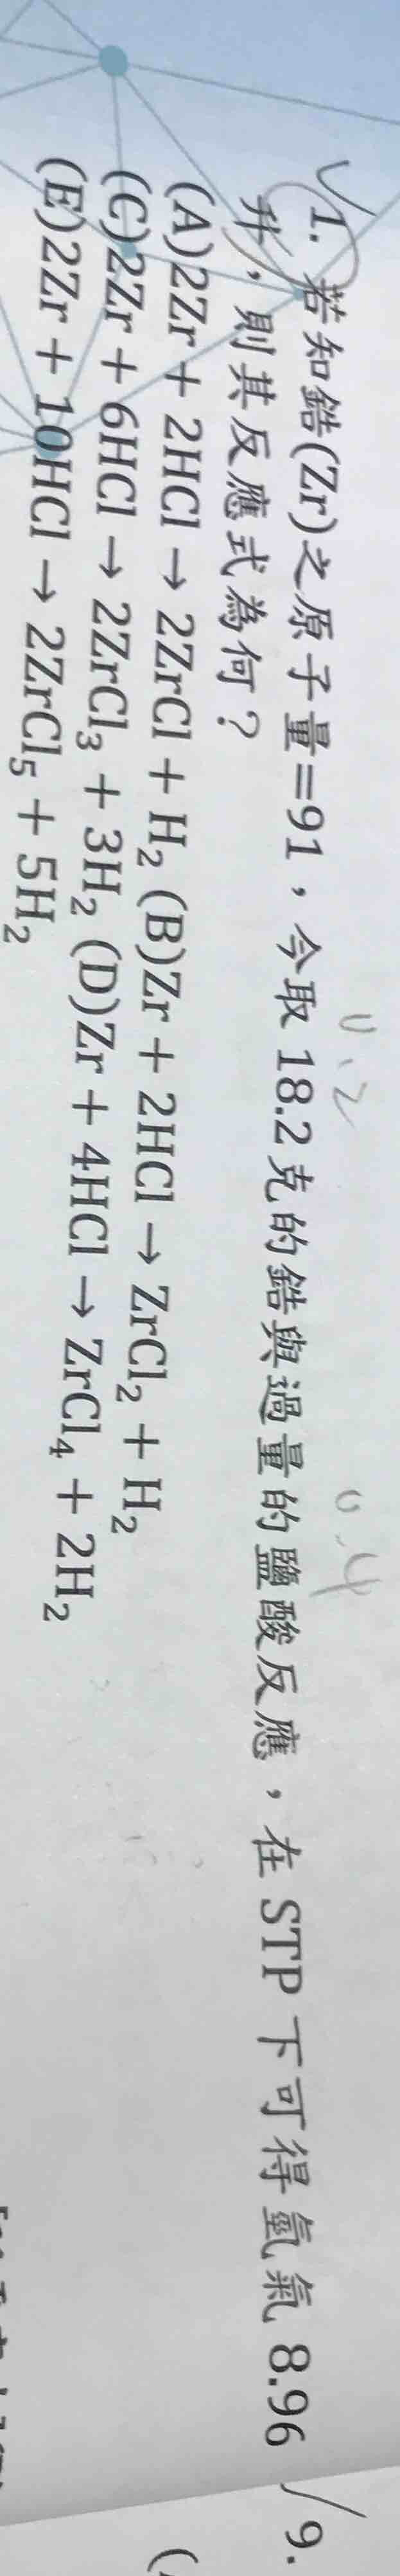 1. 若知鋯(Zr)之原子量=91，今取 18.2 克的鋯與過量的鹽酸反應，在 STP 下可得氫氣 8.96
升，則其反應式為何？
(A)2Zr + 2HCl → 2ZrCl + H₂ (B)Zr + 2HCl → ZrCl₂ + H₂
(C)2Zr + 6HCl → 2ZrCl₃ + 3H₂ (D)Zr + 4HCl → ZrCl₄ + 2H₂
(E)2Zr + 10HCl → 2ZrCl₅ + 5H₂
0.2
0.4
9.